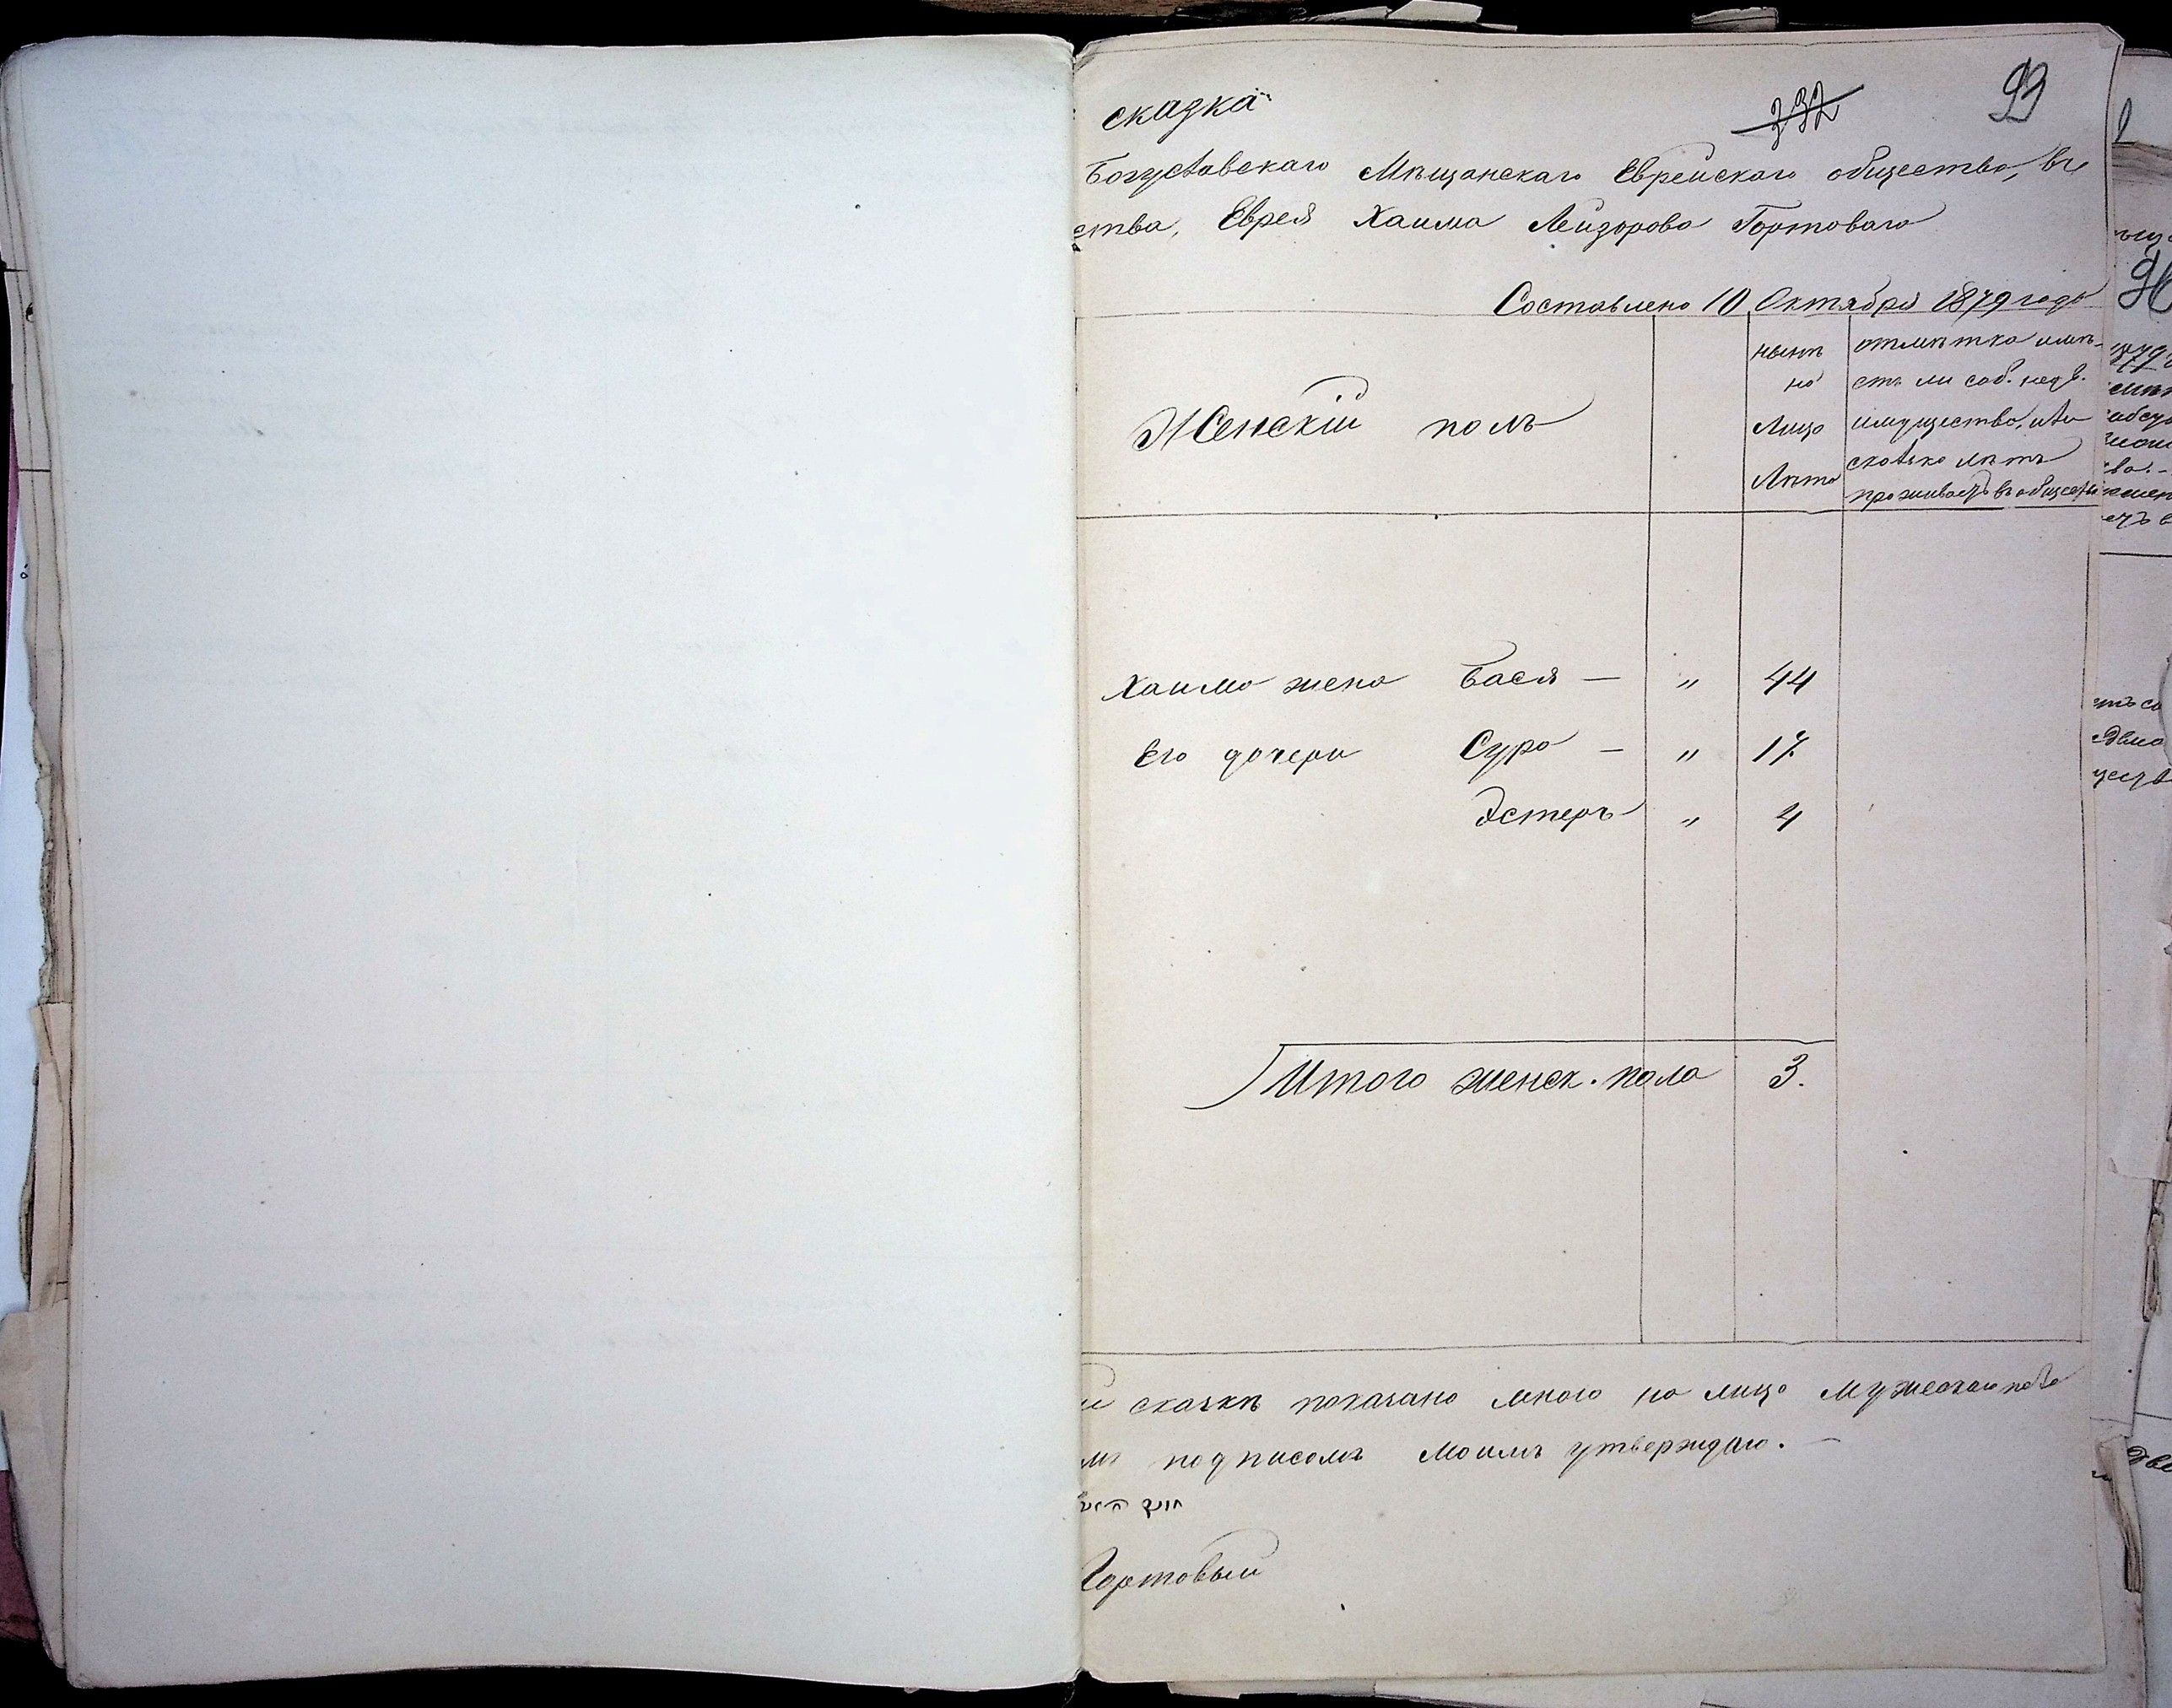 сказка
232 93
Богуславскаго Мѣщанскаго Еврейскаго общества, въ
ства, Еврея Хаима Лейзорова Гортоваго
Составлено 10 Октября 1879 года
Женскій полъ
нынѣ
на
Лицо
Лѣта
отмѣтка имѣ-
етъ ли соб. недв.
имущество, или
сколько лѣтъ
проживаетъ въ обществѣ
Хаима жена Бася — „ 44
Его дочери Сура — „ 17
Эстеръ „ 4
Итого женск. пола 3.
й сказкѣ показано много на лицо мужескаго пола
мъ подписомъ моимъ утверждаю. —
Гортовый